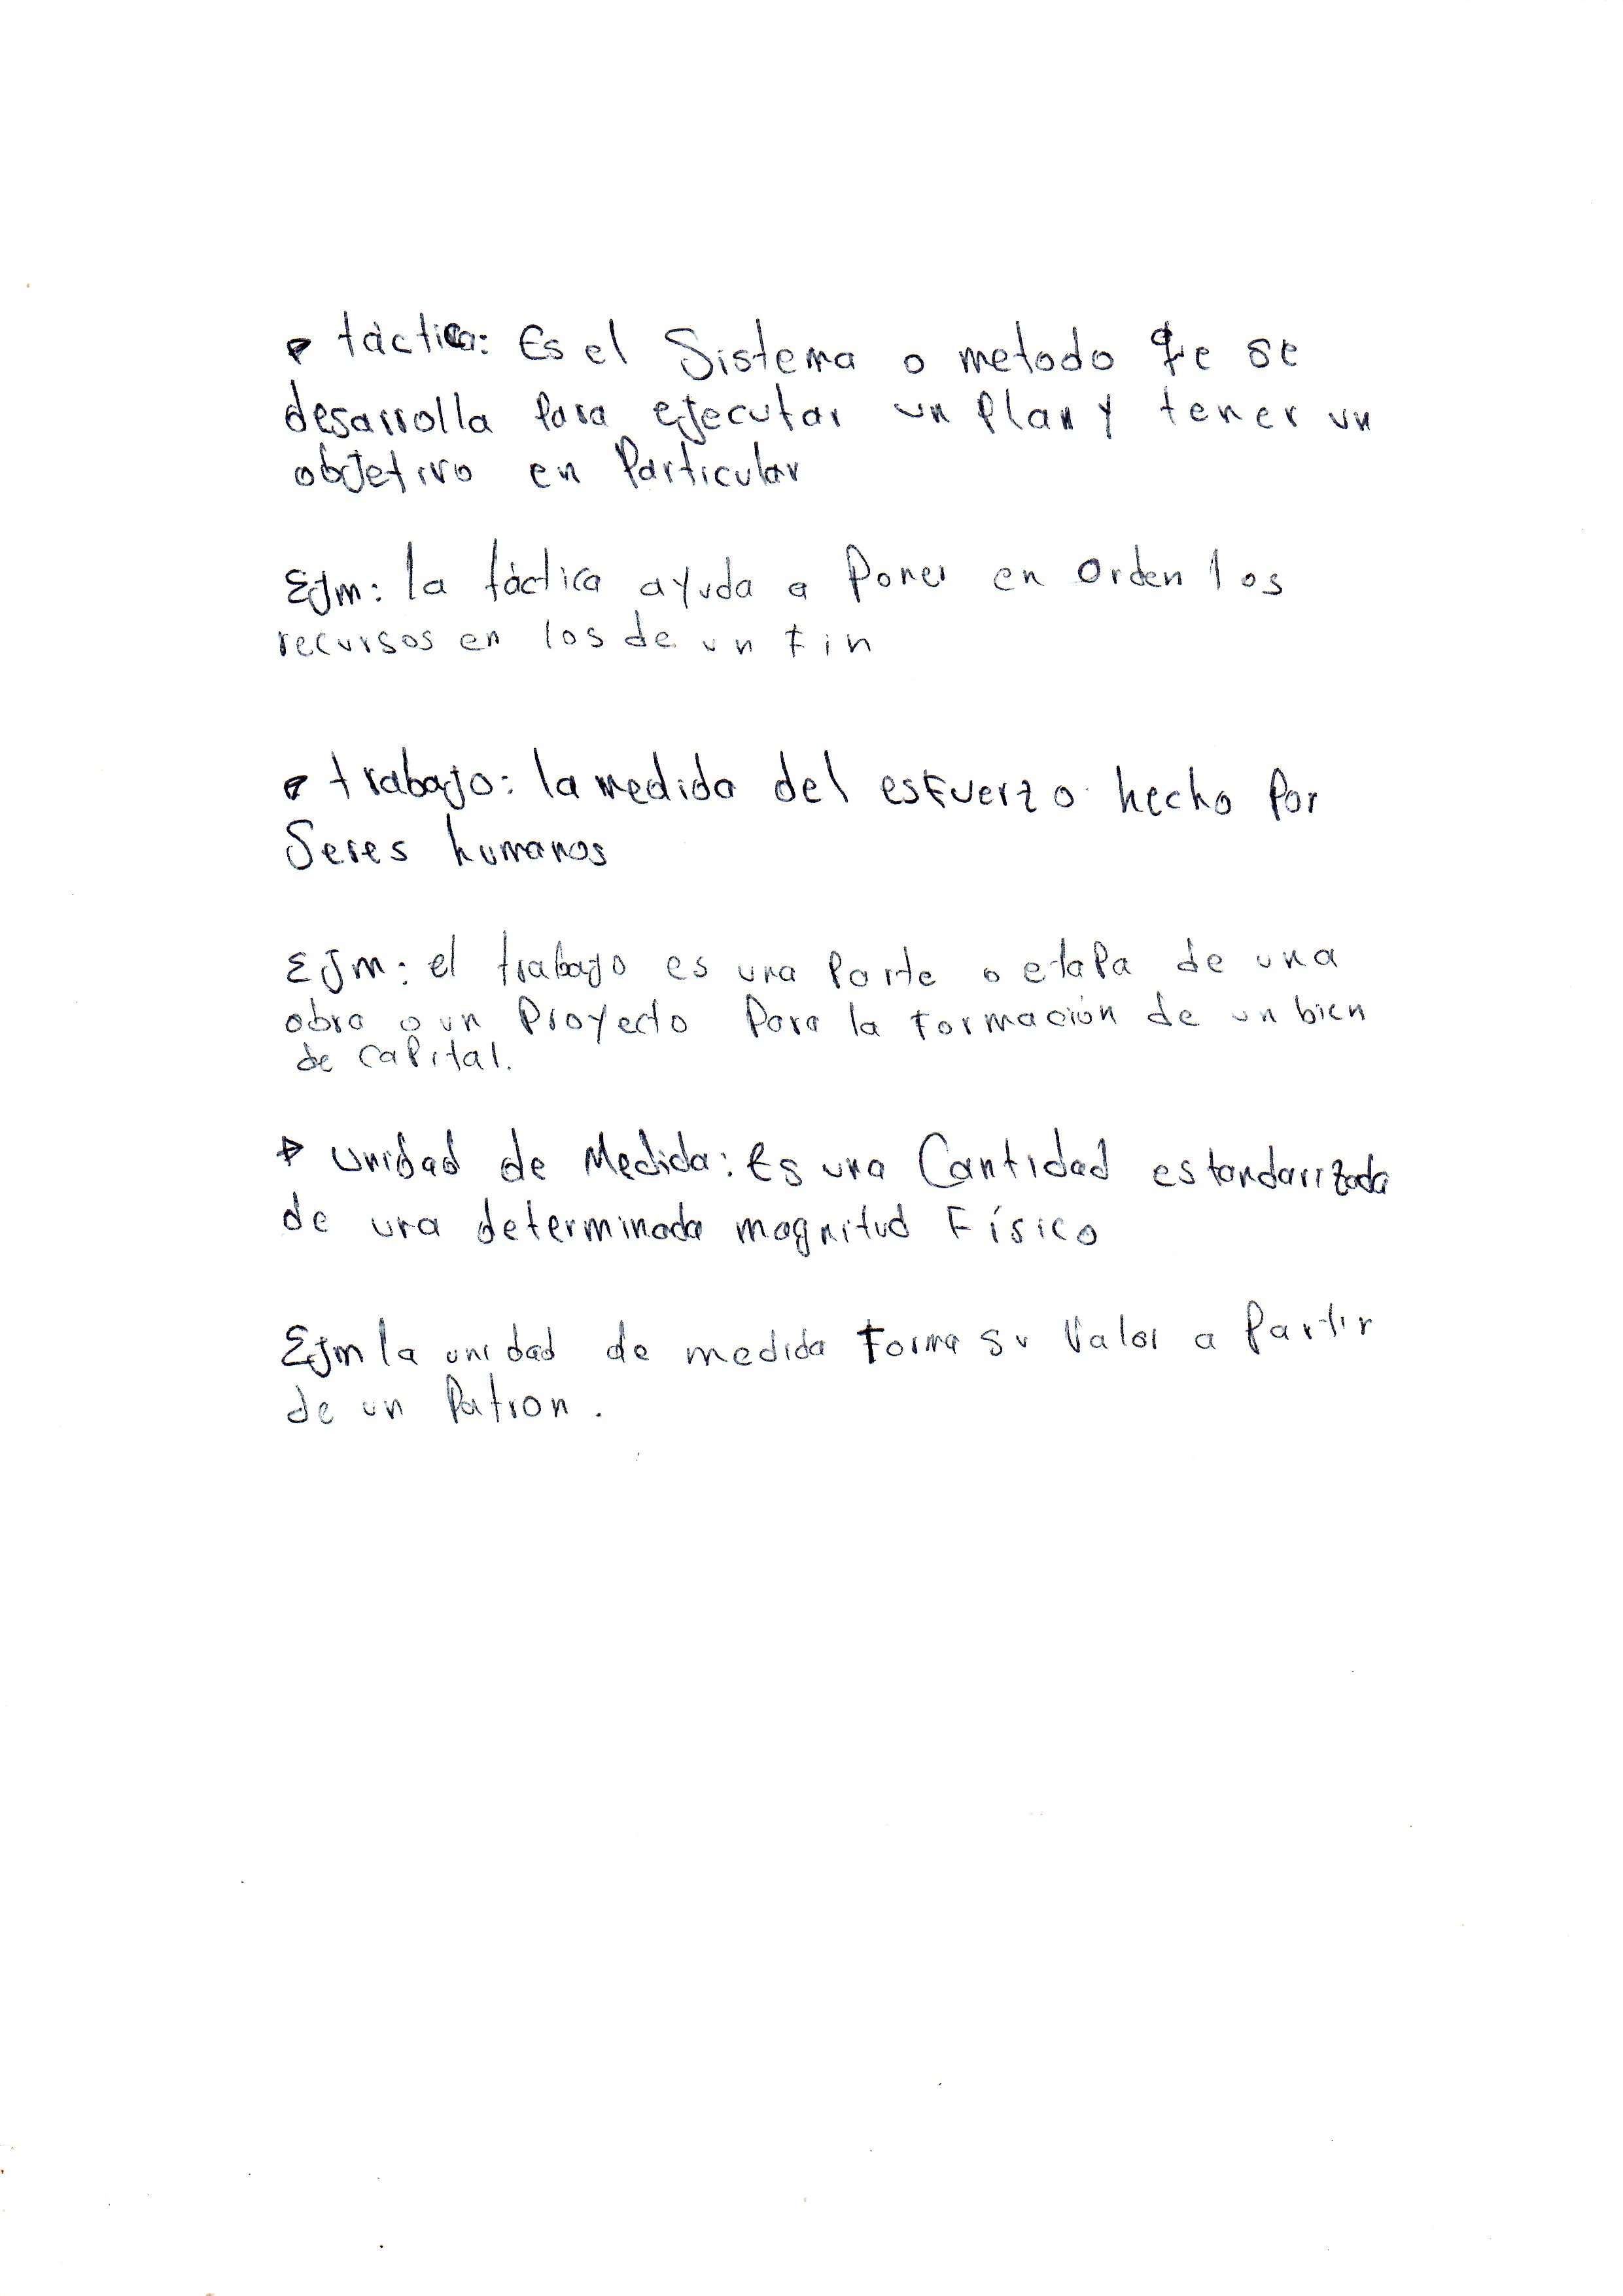 ▸ táctica: Es el Sistema o metodo qe se
desarrolla Para ejecutar un Plan y tener un
objetivo en Particular
Ejm: la táctica ayuda a Poner en Orden los
recursos en los de un fin
▸ trabajo: la medida del esfuerzo hecho Por
Seres humanos
Ejm: el trabajo es una Parte o etapa de una
obra o un Proyecto Para la formación de un bien
de capital.
▸ unidad de Medida: Es una Cantidad estandarizada
de una determinada magnitud Físico
Ejm la unidad de medida toma su Valor a Partir
de un Patron.